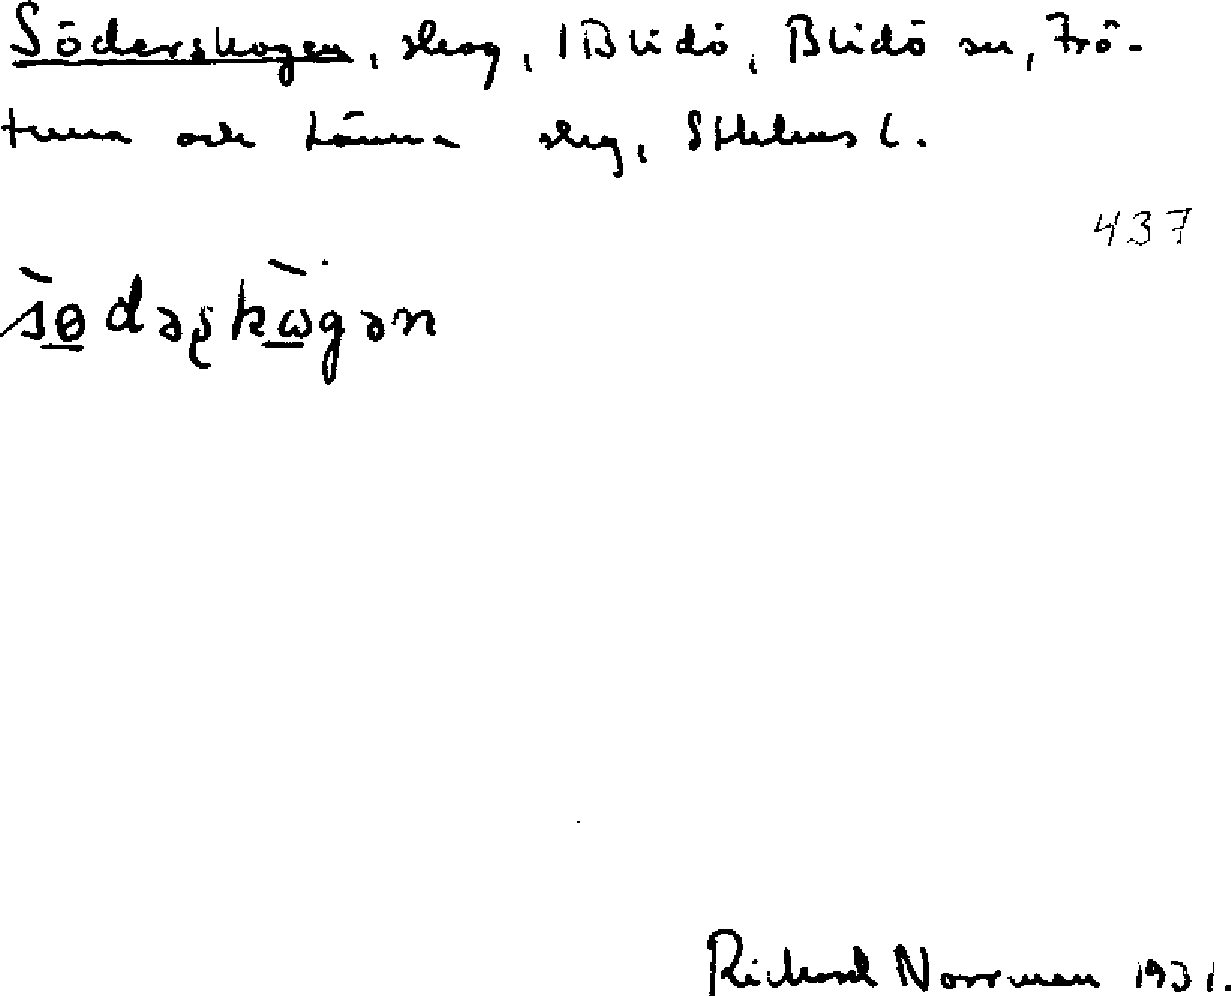 Söderskogen, skog, 1 Blidö, Blidö sn, Frö-
tuna och Länna skg, Sthlms l.
437
sødəʂkωgən
Richard Norrman 1931.